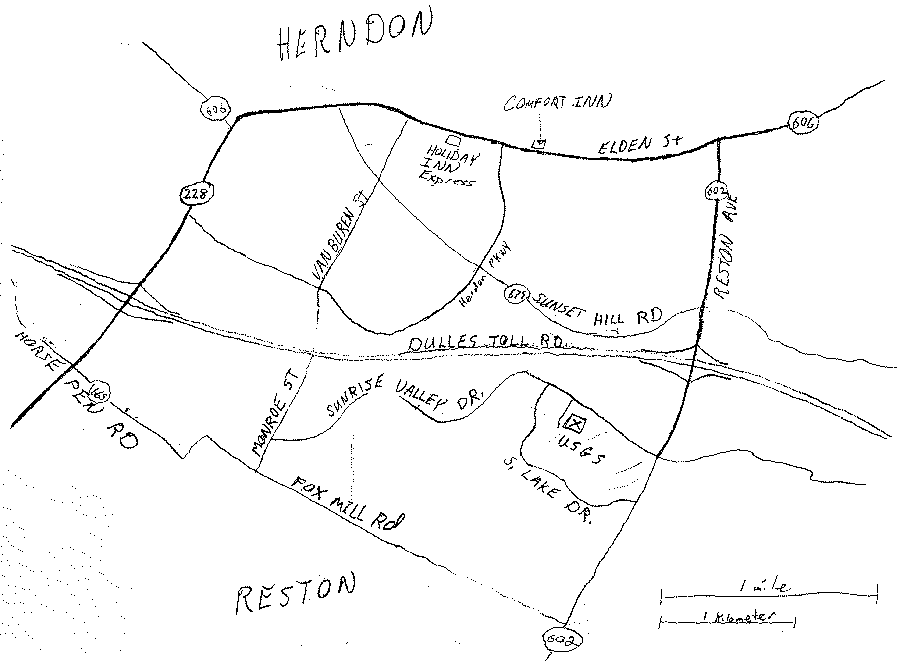 HERNDON
606
COMFORT INN
606
ELDEN St
HOLIDAY
INN
Express
228
602
VAN BUREN ST
RESTON AVE
Herndon PKWY
675
SUNSET HILL RD
DULLES TOLL RD
HORSE PEN RD
MONROE ST
SUNRISE VALLEY DR.
USGS
S. LAKE DR.
FOX MILL Rd
RESTON
1 mile
1 Kilometer
602